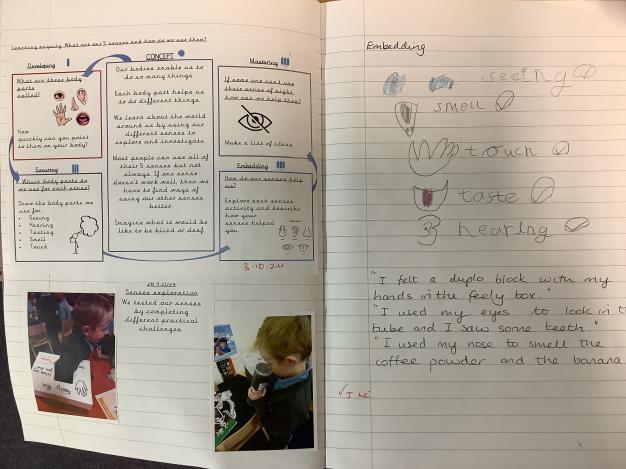 Learning enquiry: What are our 5 senses and how do we use them?
Developing
What are these body
parts
called?
How
quickly can you point
to them on your body?
CONCEPT
Our bodies enable us to
do so many things
Each body part helps us
to do different things
We learn about the world
around us by using our
different senses to
explore and investigate
Most people can use all of
their 5 senses but not
always. If one sense
doesn't work well, then we
have to find ways of
using our other senses
better.
Imagine what it would be
like to be blind or deaf
Mastering
If some one can't use
their sense of sight,
how can we help them?
Make a list of ideas.
Securing
Which body parts do
we use for each sense?
Draw the body parts we
use for
• Seeing
• Hearing
• Tasting
• Smell
• Touch
Embedding
How do our senses help
us?
Explore each senses
activity and describe
how your
senses helped
you
3.10.24
Senses exploration
We tested our senses
by completing
different practical
challenges
Embedding
seeing
smell
touch
taste
hearing
"I felt a duplo block with my
hands in the feely box."
"I used my eyes to look in t
tube and I saw some teeth."
"I used my nose to smell the
coffee powder and the banana